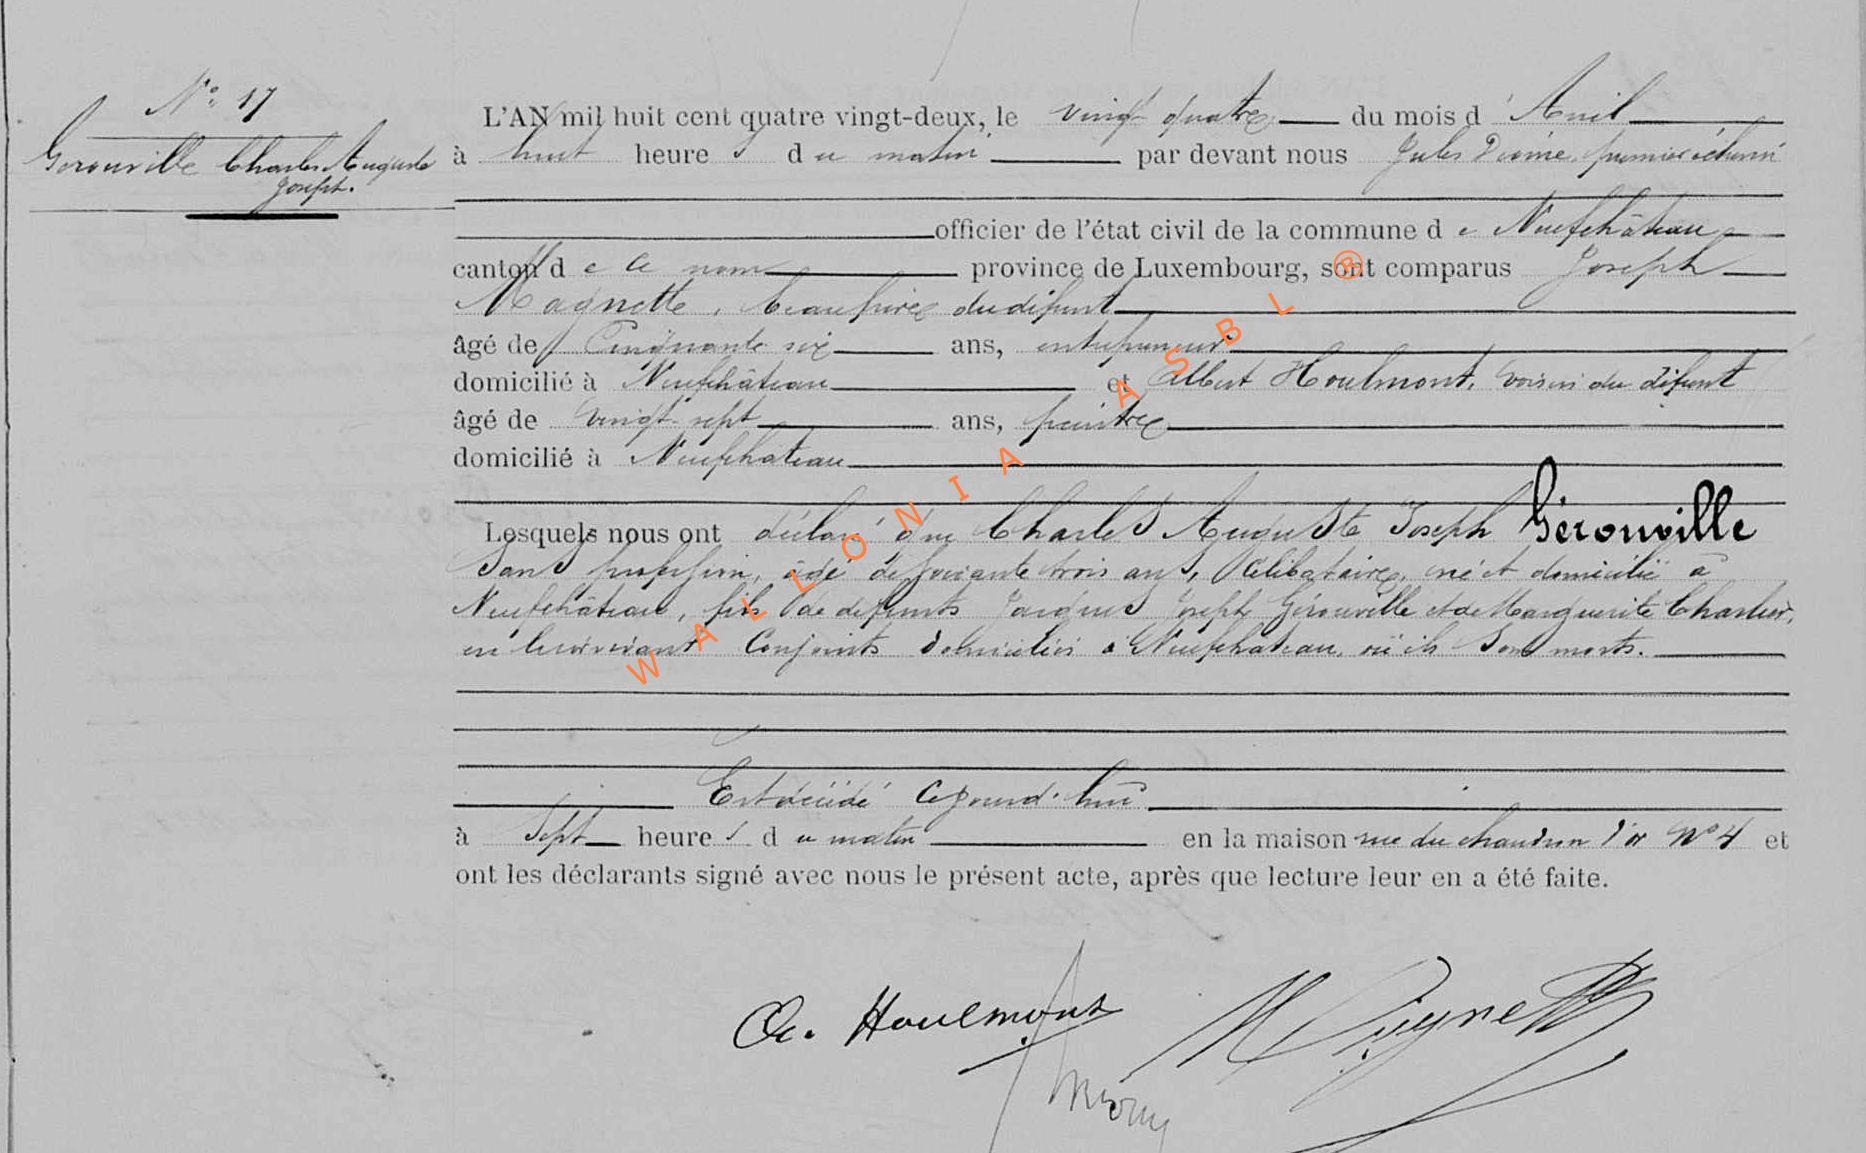 N° 17
Gérouville Charles Auguste
Joseph.
L'AN mil huit cent quatre vingt-deux, le vingt quatre du mois d'Avril
à huit heures du matin par devant nous Jules premier échevin
officier de l'état civil de la commune de Neufchâteau
canton de ce nom province de Luxembourg, sont comparus Joseph
Magnette, beau frère du défunt
âgé de Cinquante six ans, entrepreneur
domicilié à Neufchâteau et Albert Houlmont, voisin du défunt
âgé de vingt sept ans, peintre
domicilié à Neufchateau
Lesquels nous ont déclaré que Charles Auguste Joseph Gérouville
sans profession, âgé de soixante trois ans, célibataire, né et domicilié à
Neufchâteau, fils de defunts Jacques Joseph Gérouville et de Marguerite Charlier,
en leur vivant Conjoints domiciliés à Neufchateau, où ils sont morts.
Est décédé cejourd'hui
à Sept heures du matin en la maison rue du chaudron d'or N° 4 et
ont les déclarants signé avec nous le présent acte, après que lecture leur en a été faite.
A. Houlmont Magnette
WALLONIA ASBL ®